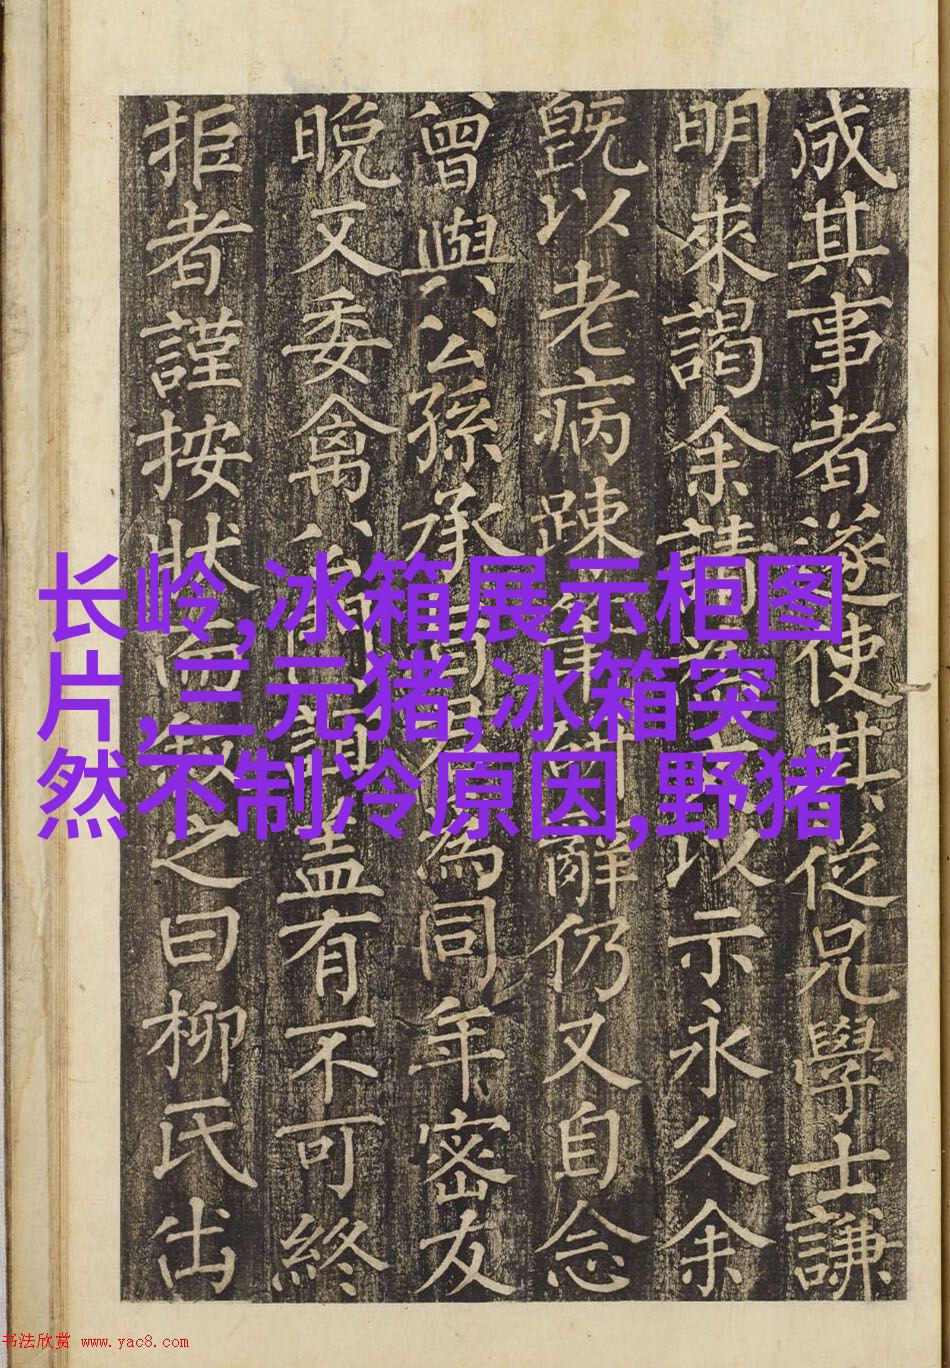 成其事者遂使其從兄學士謙
明來謁余請以示永久余
既以老病踈辭仍又自念
曾與公孫承為同年密友
晚又委禽公誼盖有不可終
拒者謹按狀而敍之曰柳氏出
长岭,冰箱展示柜图
片,三元猪,冰箱突
然不制冷原因,野猪
书法欣赏 www.yac8.com